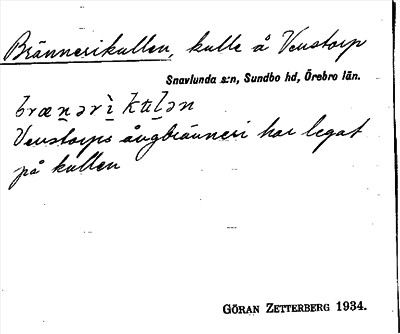 Brännerikullen, kulle å Venstorp
Snavlunda s:n, Sundbo hd, Örebro län.
brænəri kulən
Venstorps ångbränneri har legat
på kullen
GÖRAN ZETTERBERG 1934.